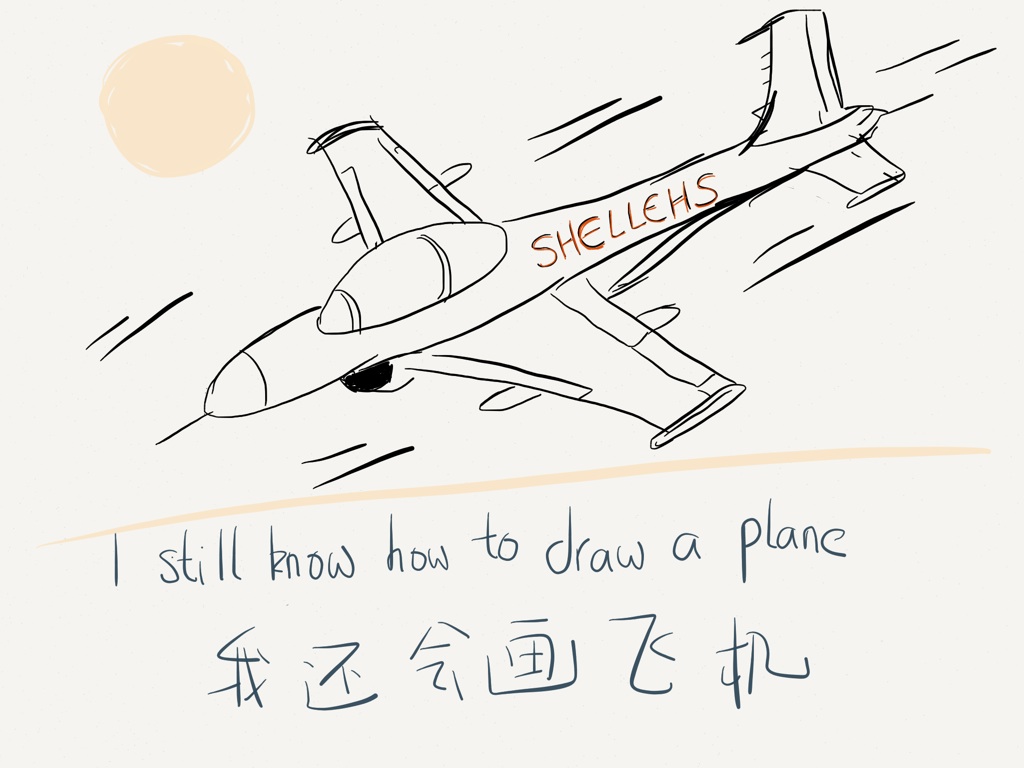 SHELLEHS
I still know how to draw a plane
我还会画飞机